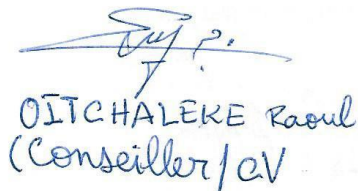 OITCHALEKE Raoul
(Conseiller/CV